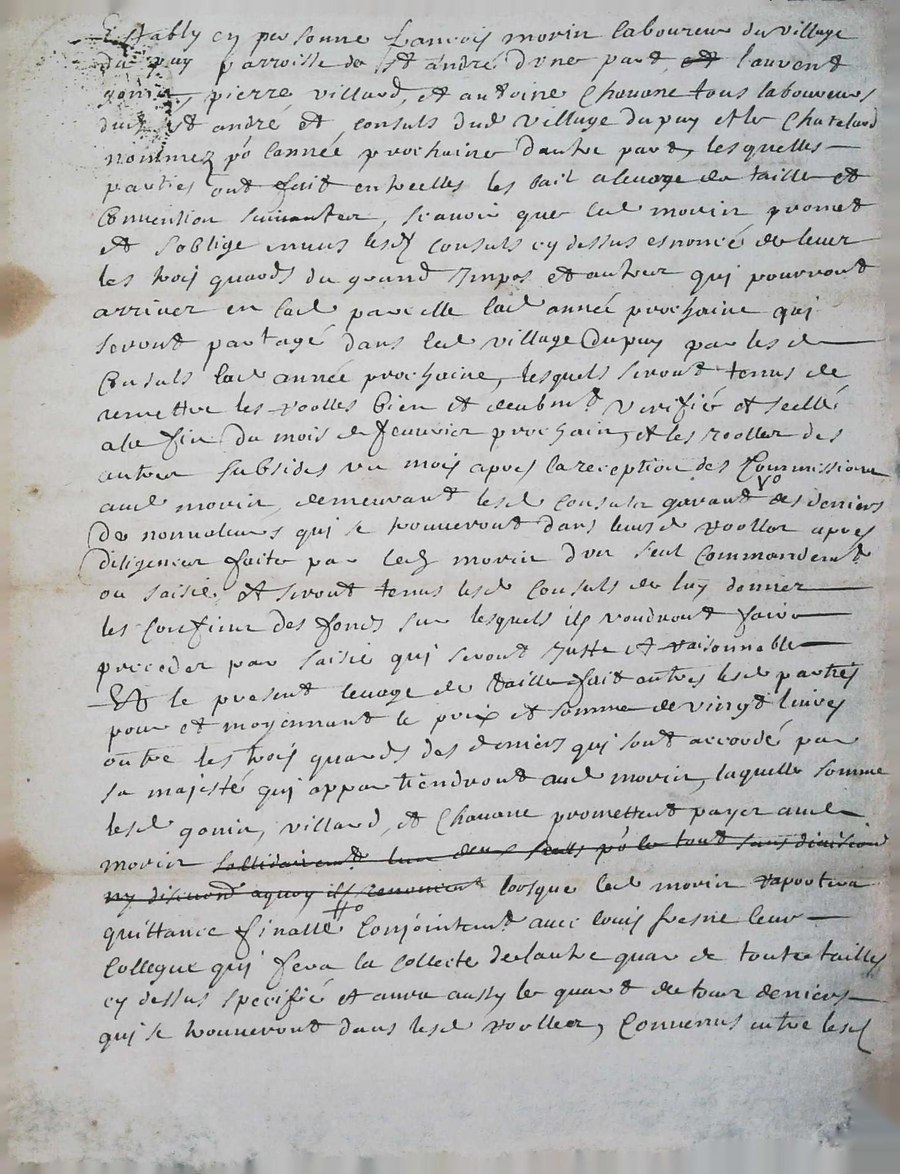 Estably en personne francois morin laboureur du village
du puy parroisse de St andré dune part, et lauvent
gonin, pierre villard, et antoine Chouane tous laboureurs
dud St andré et consuls dud village du puy et le Chatelard
nommez po lannée prochaine dautre part, lesquelles
parties ont fait entrelles les bail aleuage de taille et
Convention suivantes, scauoir que led morin promet
et soblige enuers lesd consuls cy dessus esnoncé de leuer
les trois quards du grand Impos et autres qui pourront
arriuer en lad parcelle lad année prochaine qui
seront partagé dans led village Dupuy par lesd
Consuls lad année prochaine, lesquels seront tenus de
remettre les roolles bien et deubmt verifié et scellé
ala fin du mois de feurier prochain, et les roolles des
autres subsides un mois apres la reception des Commissions
aud morin, demeurant lesd consuls garant des deniers
de nonualeurs qui se trouueront dans leursd roolles apres
diligences faite par led morin dun seul Commandemt
ou saisie, et seront tenus lesd consuls de luy donner
les confins des fonds sur lesquels ils voudront faire
proceder par saisie qui seront Juste et raisonnable
Et le present leuage de taille fait entres lesd parties
pour et moyennant le prix et somme de vingt liures
outre les trois quards des deniers qui sont accordé par
sa majesté qui appartiendront aud morin, laquelle somme
lesd gonin, villard, et Chouane promettent payer aud
morin sollidairemt lun deux seuls po le tout sans diuision
ny discution aquoy ils renoncent lorsque led morin rapportera
quittance finalle Conjointemt auec louis fresne leur
Collegue qui fera la collecte de lautre quar de toutes tailles
cy dessus specifié et aura aussy le quart de tous deniers
qui se trouueront dans lesd roolles, Conuenus entre lesd